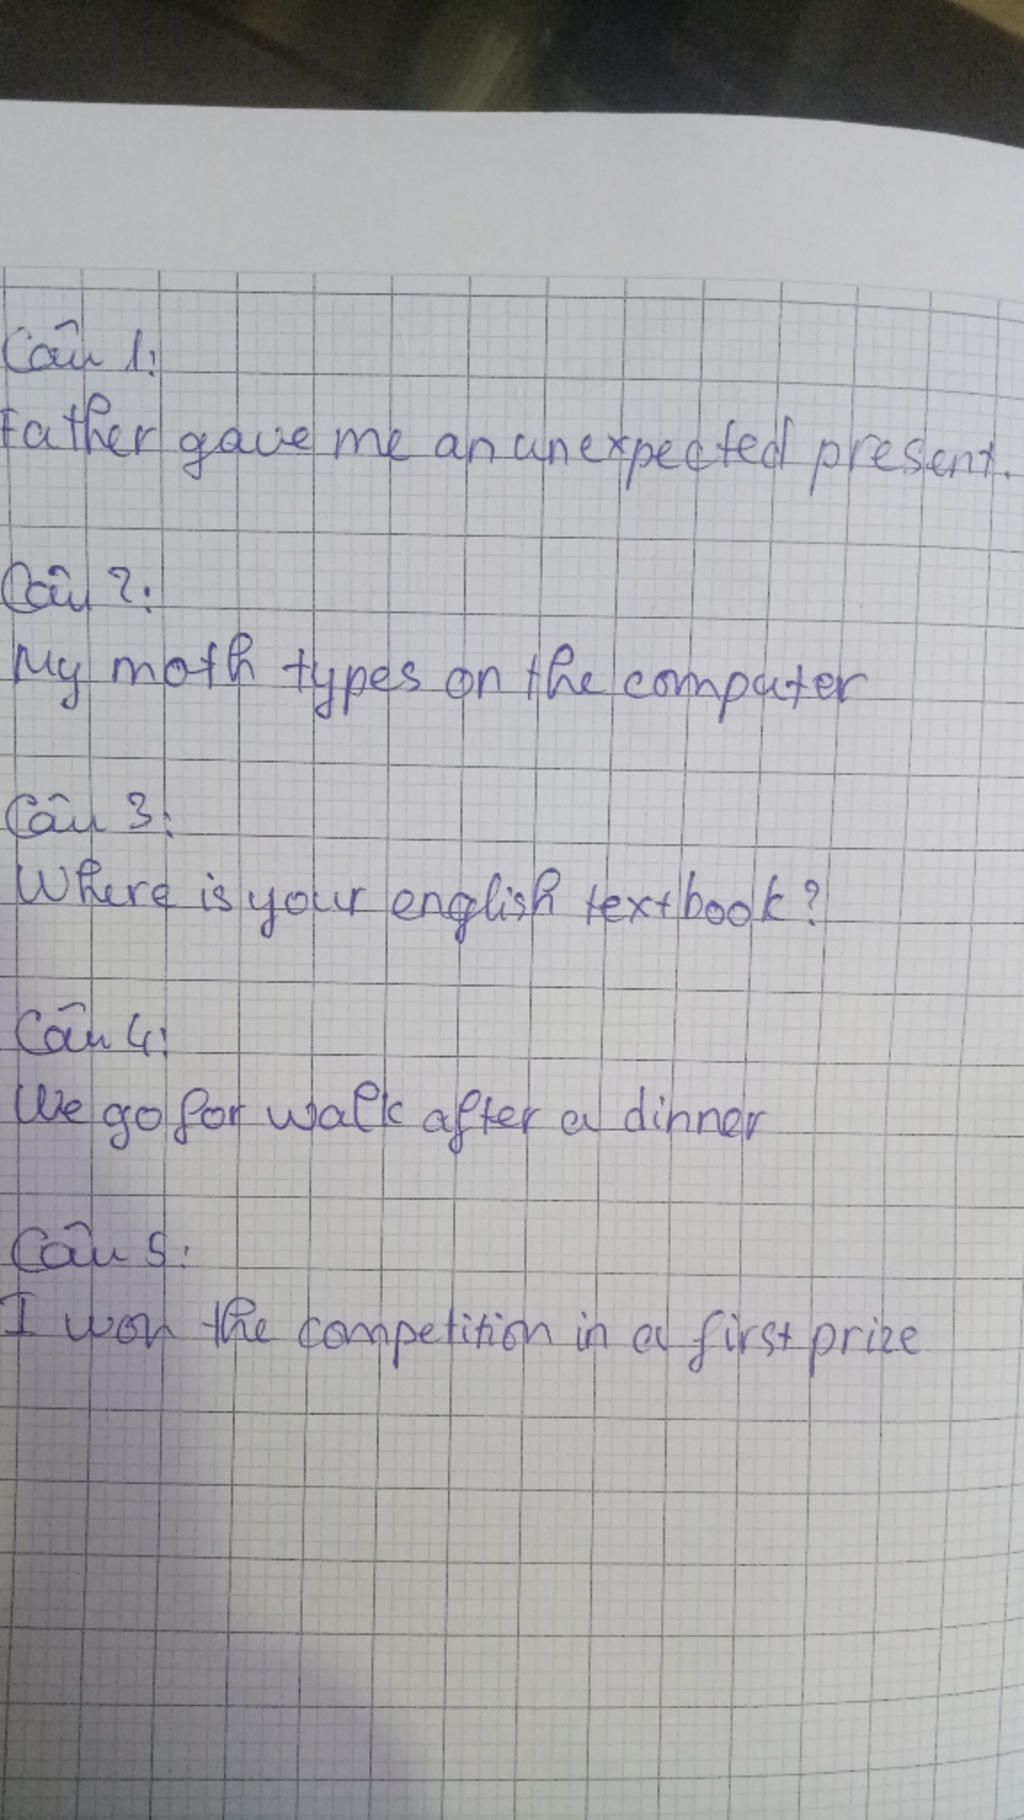 Câu 1:
Father gave me an unexpected present.
Câu 2:
My moth types on the computer
Câu 3:
Where is your english textbook?
Câu 4:
We go for walk after a dinner
Câu 5:
I won the competition in a first prize